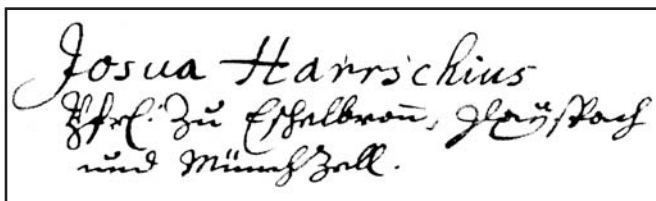 Josua Harrschius
Pfr. Zu Eschelbronn,
und Münchzell.